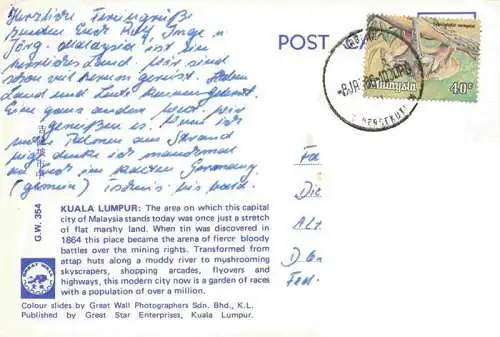 Herzliche Feriengrüße
senden Euch Rolf, Inge u.
Jörg. Malaysia ist ein
herrliches Land. Wir sind
schon viel herum gereist. Haben
Land und Leute kennengelernt.
Eine ganz andere Welt. Wir
genießen es. Wenn ich
unter Palmen am Strand
liege denke ich manchmal
an euch im kalten Germany
bis bald.
POST CA
malaysia 40c
Fa
Die
Alt
Fed.
G.W. 354
GREAT WALL
KUALA LUMPUR: The area on which this capital
city of Malaysia stands today was once just a stretch
of flat marshy land. When tin was discovered in
1864 this place became the arena of fierce bloody
battles over the mining rights. Transformed from
attap huts along a muddy river to mushrooming
skyscrapers, shopping arcades, flyovers and
highways, this modern city now is a garden of races
with a population of over a million.
Colour slides by Great Wall Photographers Sdn. Bhd., K.L.
Published by Great Star Enterprises, Kuala Lumpur.